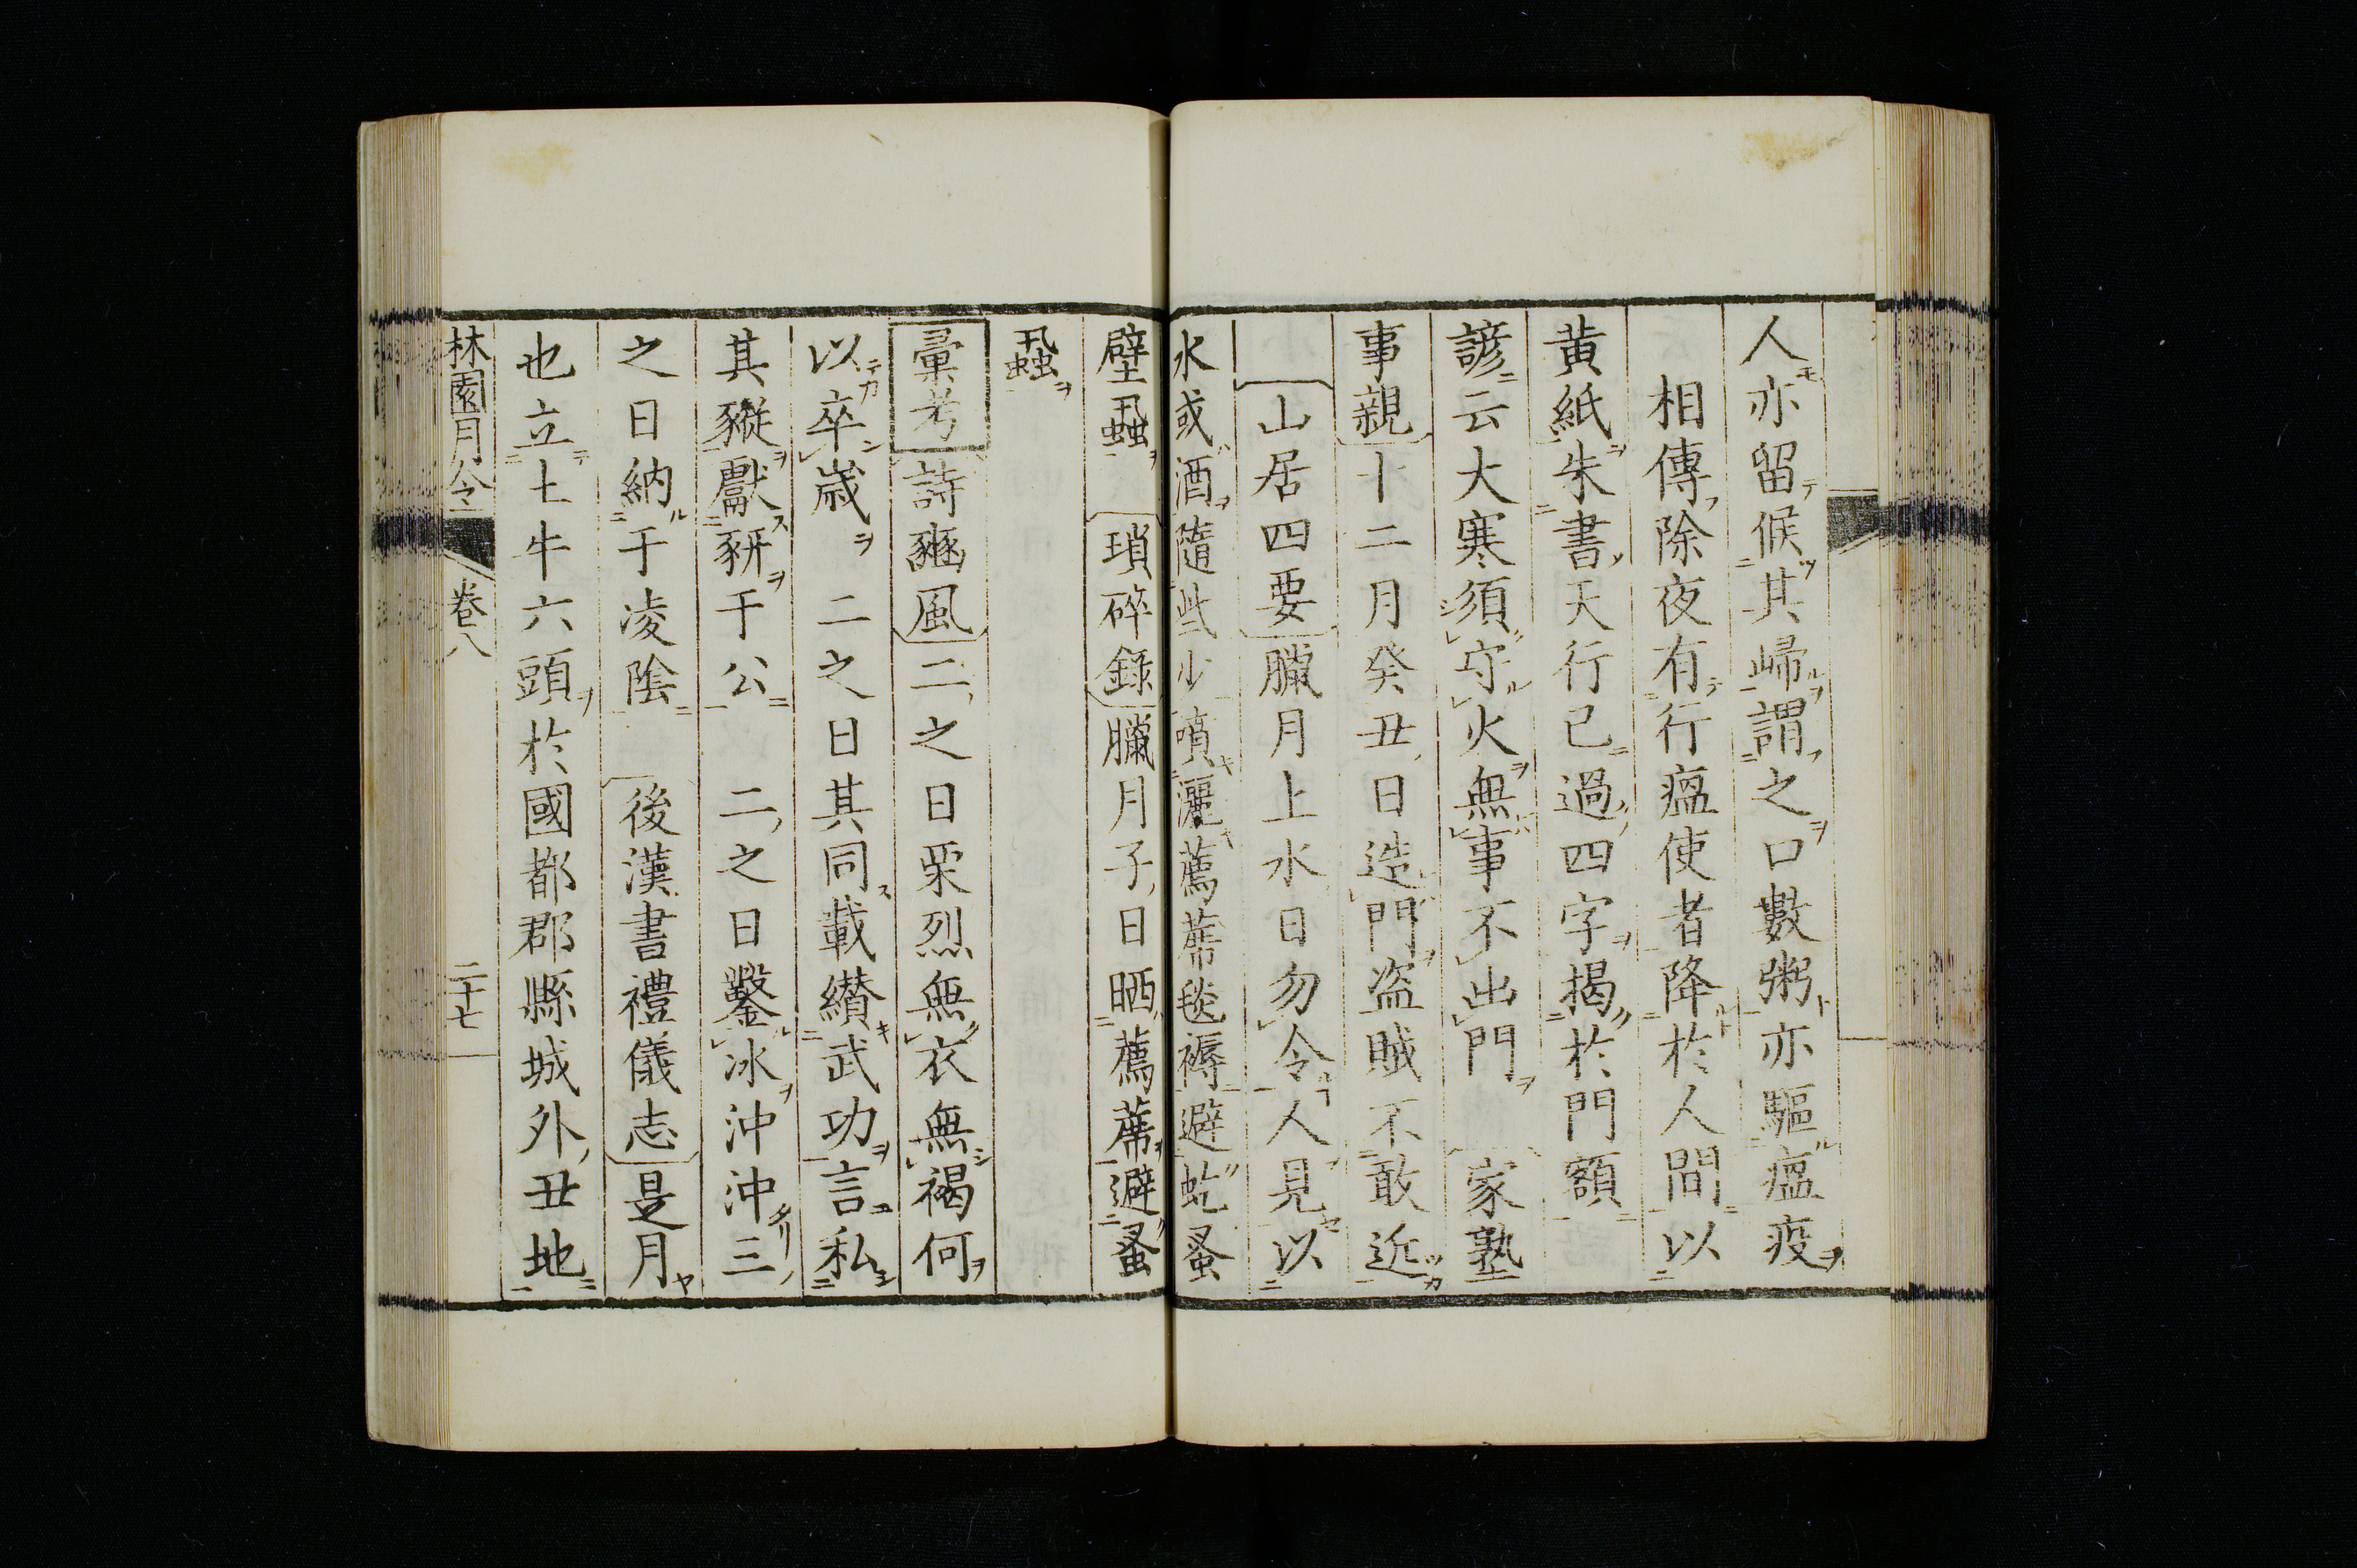 人亦留候其歸謂之口數粥亦驅瘟疫
相傳除夜有行瘟使者降於人間以
黄紙朱書天行已過四字揭於門額
諺云大寒須守火無事不出門 家塾
事親十二月癸丑日造門盗賊不敢近
山居四要臘月上水日勿令人見以
水或酒隨些少噴灑薦蓆毯褥避虼蚤
壁蝨 瑣碎錄臘月子日晒薦蓆避蚤
蝨
彙考 詩豳風二之日栗烈無衣無褐何
以卒歳 二之日其同載纘武功言私
其豵獻豜于公 二之日鑿冰沖沖三
之日納于凌陰 後漢書禮儀志是月
也立土牛六頭於國都郡縣城外丑地
林園月令 卷八 二十七